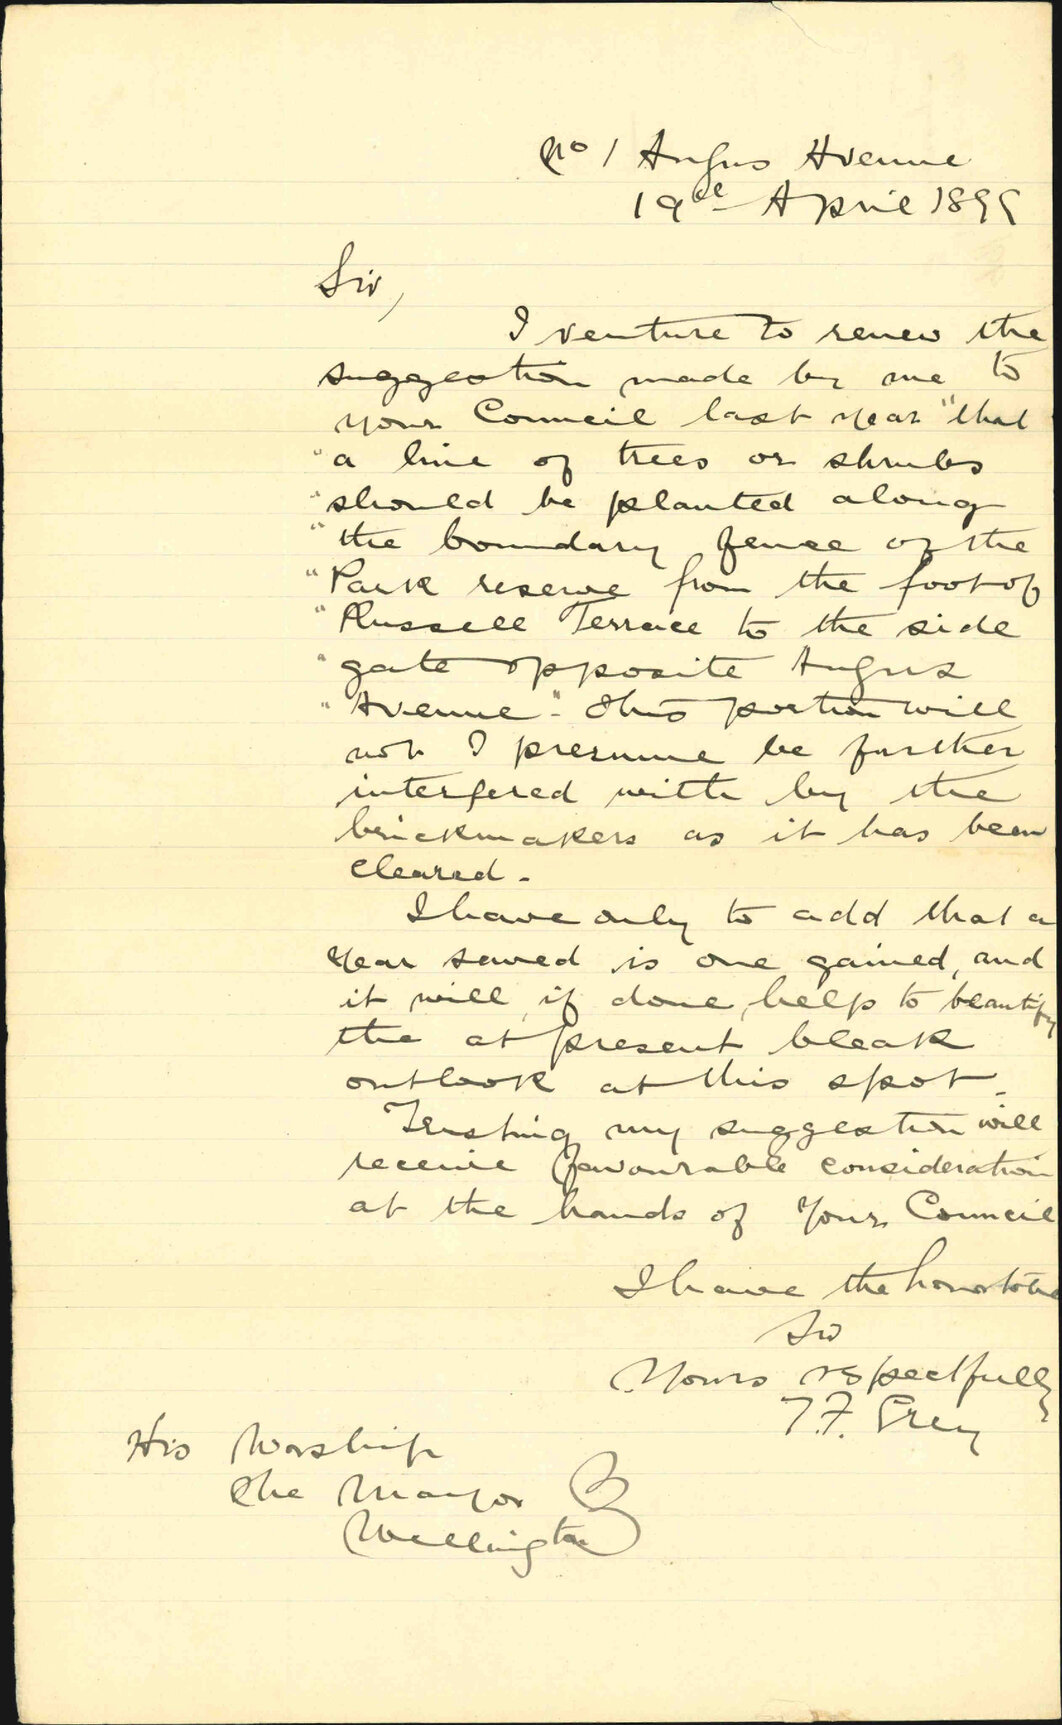 No 1 Angus Avenue
19th April 1899
Sir,
I venture to renew the
suggestion made by me to
your Council last year "that
"a line of trees or shrubs
"should be planted along
"the boundary fence of the
"Park reserve from the foot of
"Russell Terrace to the side
"gate opposite Angus
"Avenue". This portion will
not I presume be further
interfered with by the
brickmakers as it has been
cleared.
I have only to add that a
year saved is one gained, and
it will, if done, help to beautify
the at present bleak
outlook at this spot.
Trusting my suggestion will
receive favourable consideration
at the hands of Your Council
I have the honor to be
Sir
Yours respectfully
T. F. Grey
His Worship
The Mayor
Wellington